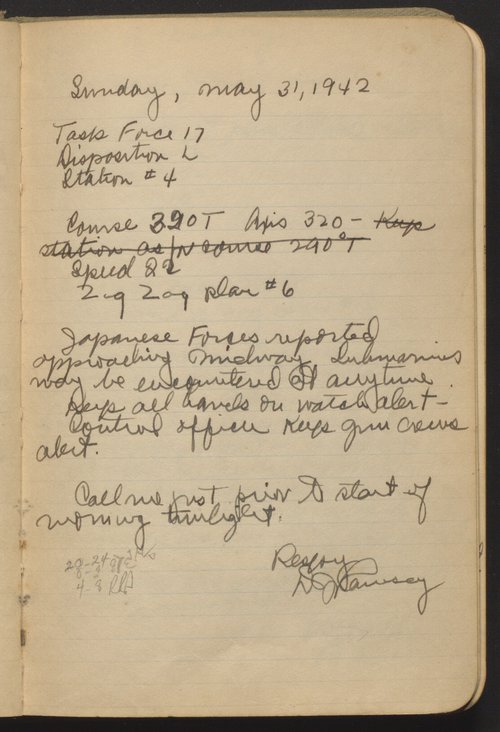 Sunday, May 31, 1942
Task Force 17
Disposition L
Station #4
Course 320T Axis 320 - Keep
station as per course 290°T
Speed 22
Zig Zag plan #6
Japanese Forces reported
approaching Midway. Submarines
may be encountered at anytime.
Keep all hands on watch alert -
Control officer keep gun crews
alert.
Call me just prior to start of
morning twilight.
20-24
4-8
Respy
D J Ramsey